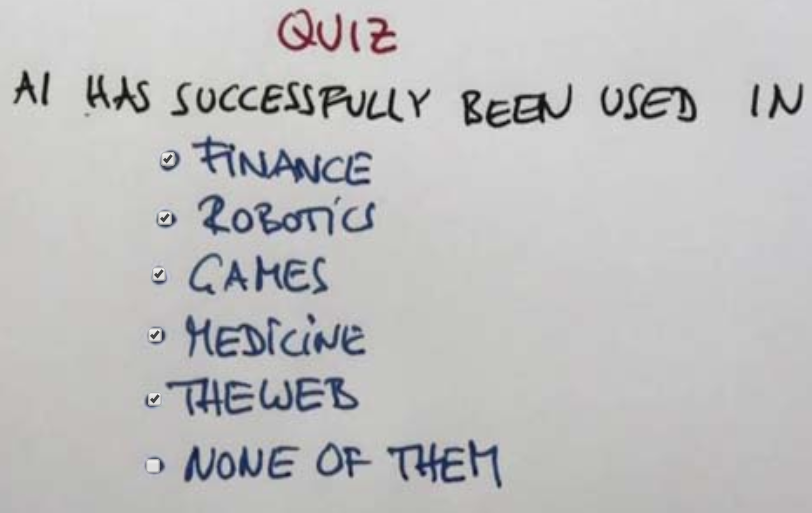 QUIZ
AI HAS SUCCESSFULLY BEEN USED IN
FINANCE
ROBOTICS
GAMES
MEDICINE
THE WEB
NONE OF THEM